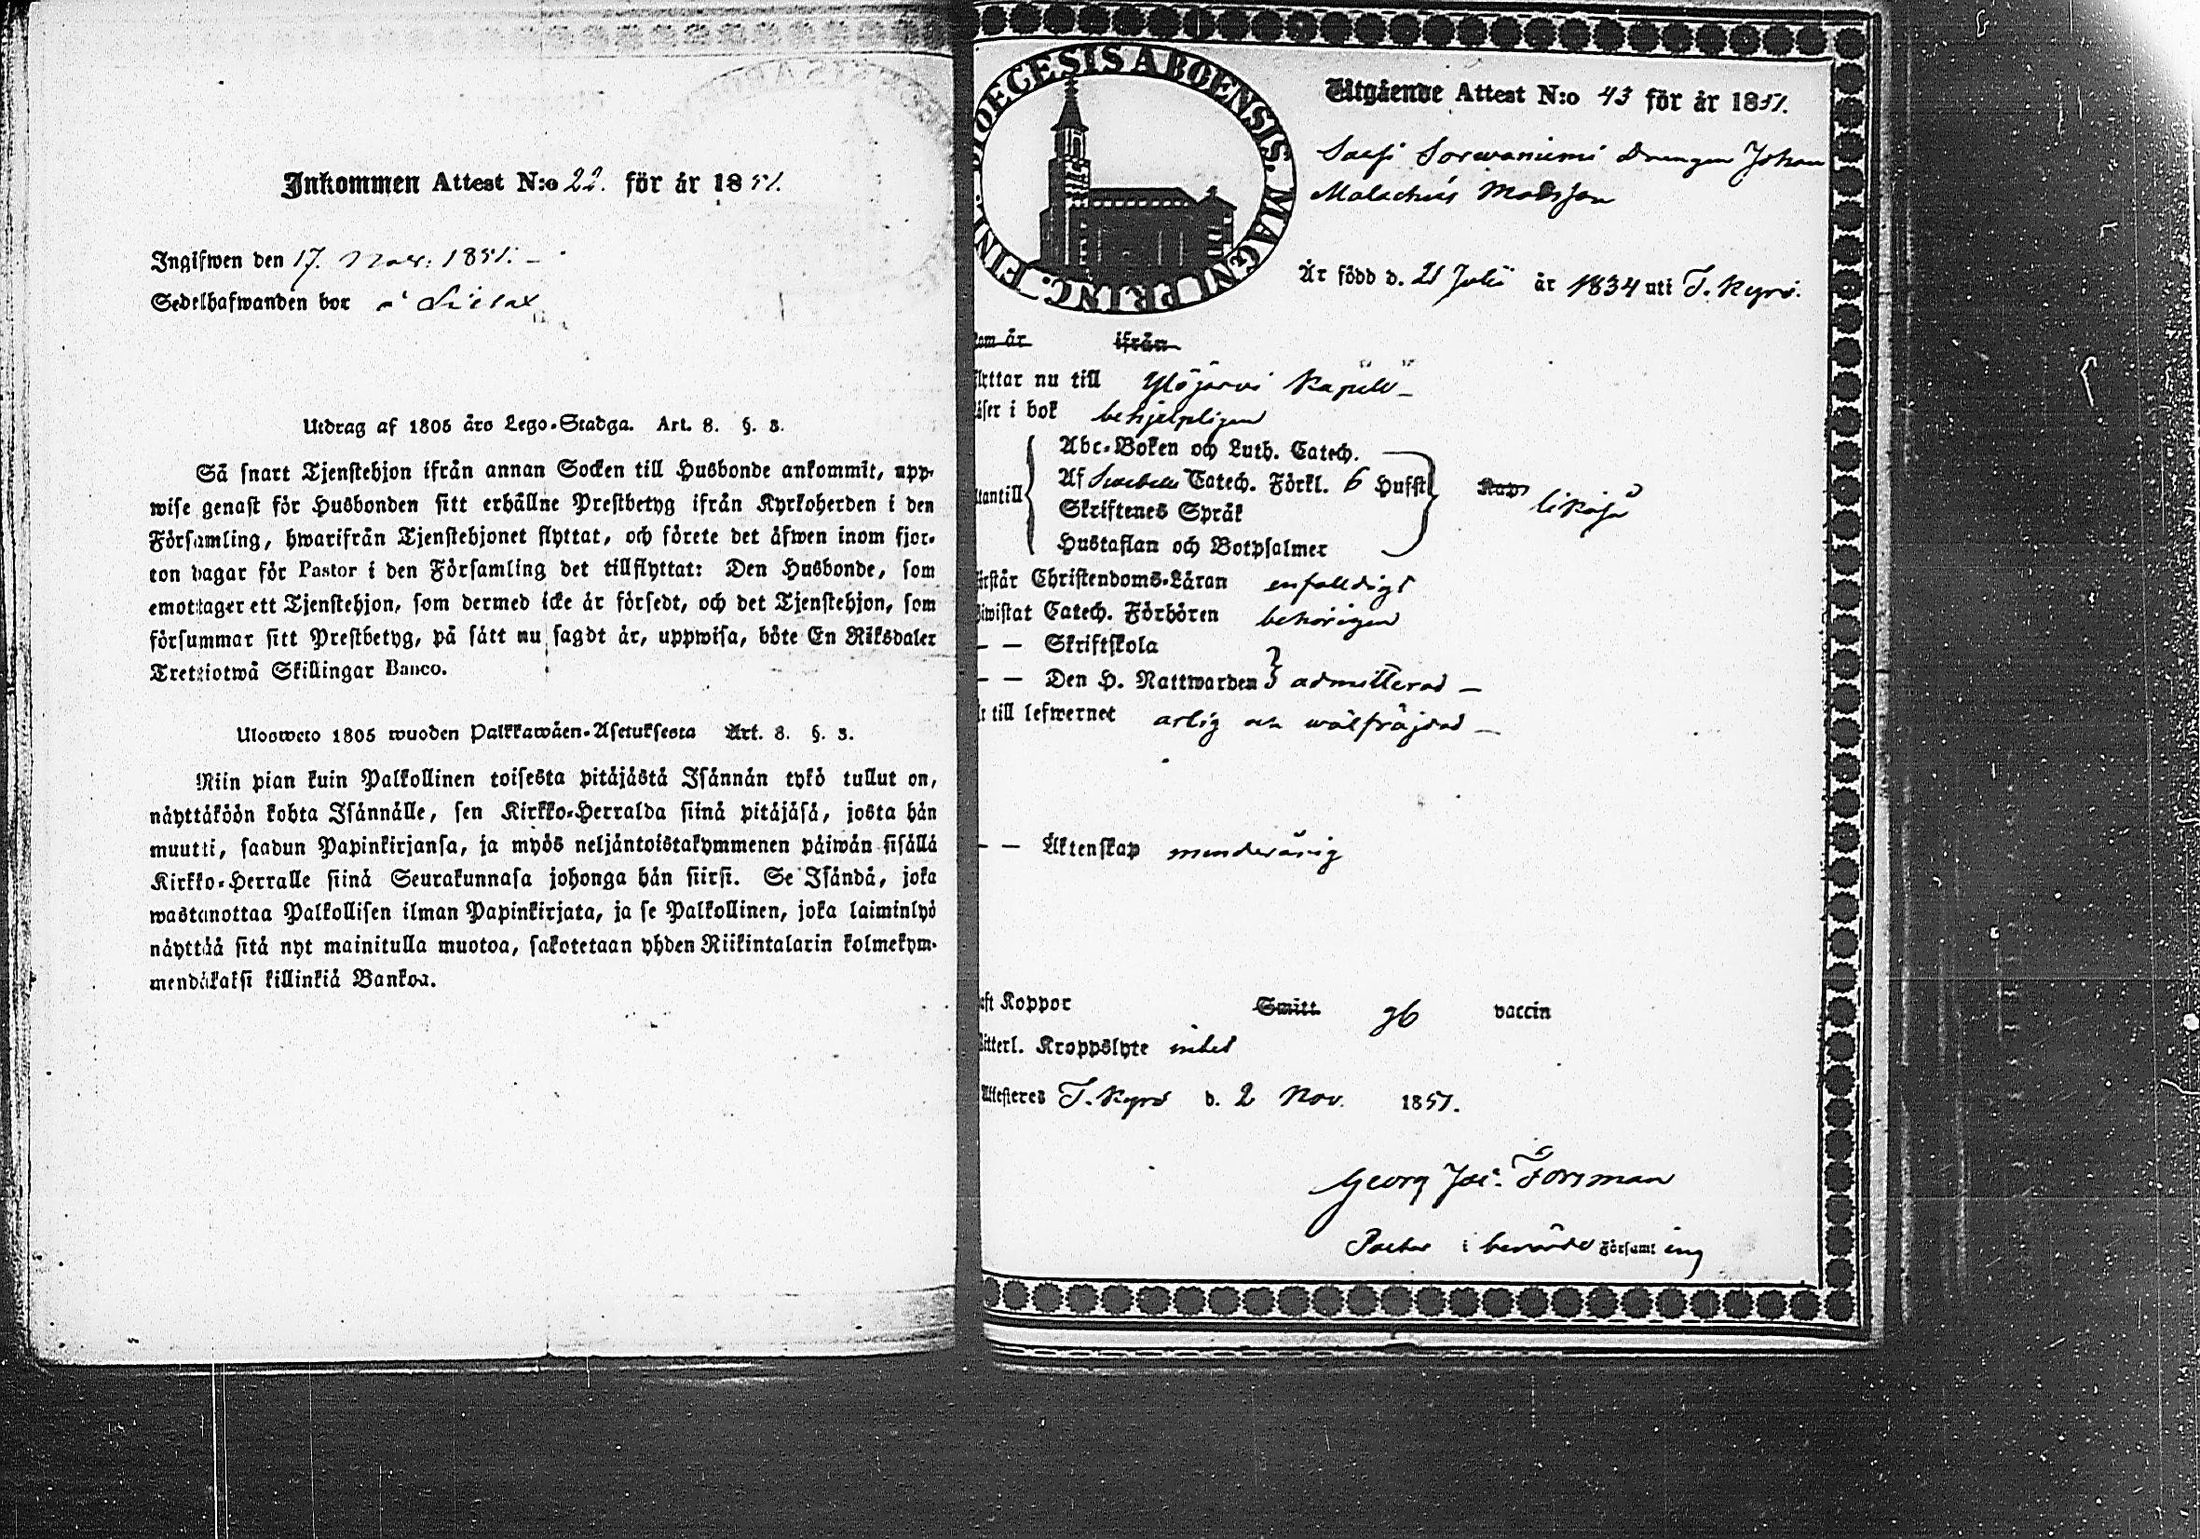 Inkommen Attest N:o 22. för år 1851.
Ingifwen den 17. Nov: 1851. –
Sedelhafwanden bor å
Utdrag af 1805 års Lego-Stadga. Art. 8. §. 3.
Så snart Tjenstehjon ifrån annan Socken till Husbonde ankommit, upp-
wise genast för Husbonden sitt erhållne Prestbetyg ifrån Kyrkoherden i den
Församling, hwarifrån Tjenstehjonet flyttat, och förete det åfwen inom fjor-
ton dagar för Pastor i den Församling det tillflyttat: Den Husbonde, som
emottager ett Tjenstehjon, som dermed icke är försedt, och det Tjenstehjon, som
försummar sitt Prestbetyg, på sätt nu sagdt är, uppwisa, böte En Riksdaler
Trettiotwå Skillingar Banco.
Ulosweto 1805 wuoden Palkkawäen-Asetuksesta Art. 8. §. 3.
Niin pian kuin Palkollinen toisesta pitäjästä Isännän tykö tullut on,
näyttäköön kohta Isännälle, sen Kirkko-Herralda siinä pitäjäsä, josta hän
muutti, saadun Papinkirjansa, ja myös neljäntoistakymmenen päiwän sisällä
Kirkko-Herralle siinä Seurakunnasa johonga hän siirsi. Se Isändä, joka
wastanottaa Palkollisen ilman Papinkirjata, ja se Palkollinen, joka laiminlyö
näyttää sitä nyt mainitulla muotoa, sakotetaan yhden Riikintalarin kolmekym-
mendäkaksi killinkiä Bankoa.
DIOECESIS ABOENSIS. MAGNI PRINC. FINL.
Utgående Attest N:o 43 för år 1851.
Drengen Johan
Malachias Madsson
Är född d. 21 Julii år 1834 uti T. Kyrö.
som är ifrån
flyttar nu till Ylöjärvi Kapell –
läser i bok behjelpligen
Abc-Boken och Luth. Catech.
utantill Af Svebelii Catech. Förkl. 6 Hufst likaså
Skriftenes Språk
Hustaflan och Botpsalmer
förstår Christendoms-Läran enfaldigt
biwistat Catech. Förhören behörigen
– – Skriftskola
– – Den H. Nattwarden admitterad –
är till lefwernet ärlig och wälfräjdad –
– – Äktenskap minderårig
haft Koppor Smitt gb vaccin
Witterl. Kroppslyte intet
Attesteres T. Kyrö d. 2 Nov. 1851.
Georg Jac. Forsman
Pastor i berörde Församling